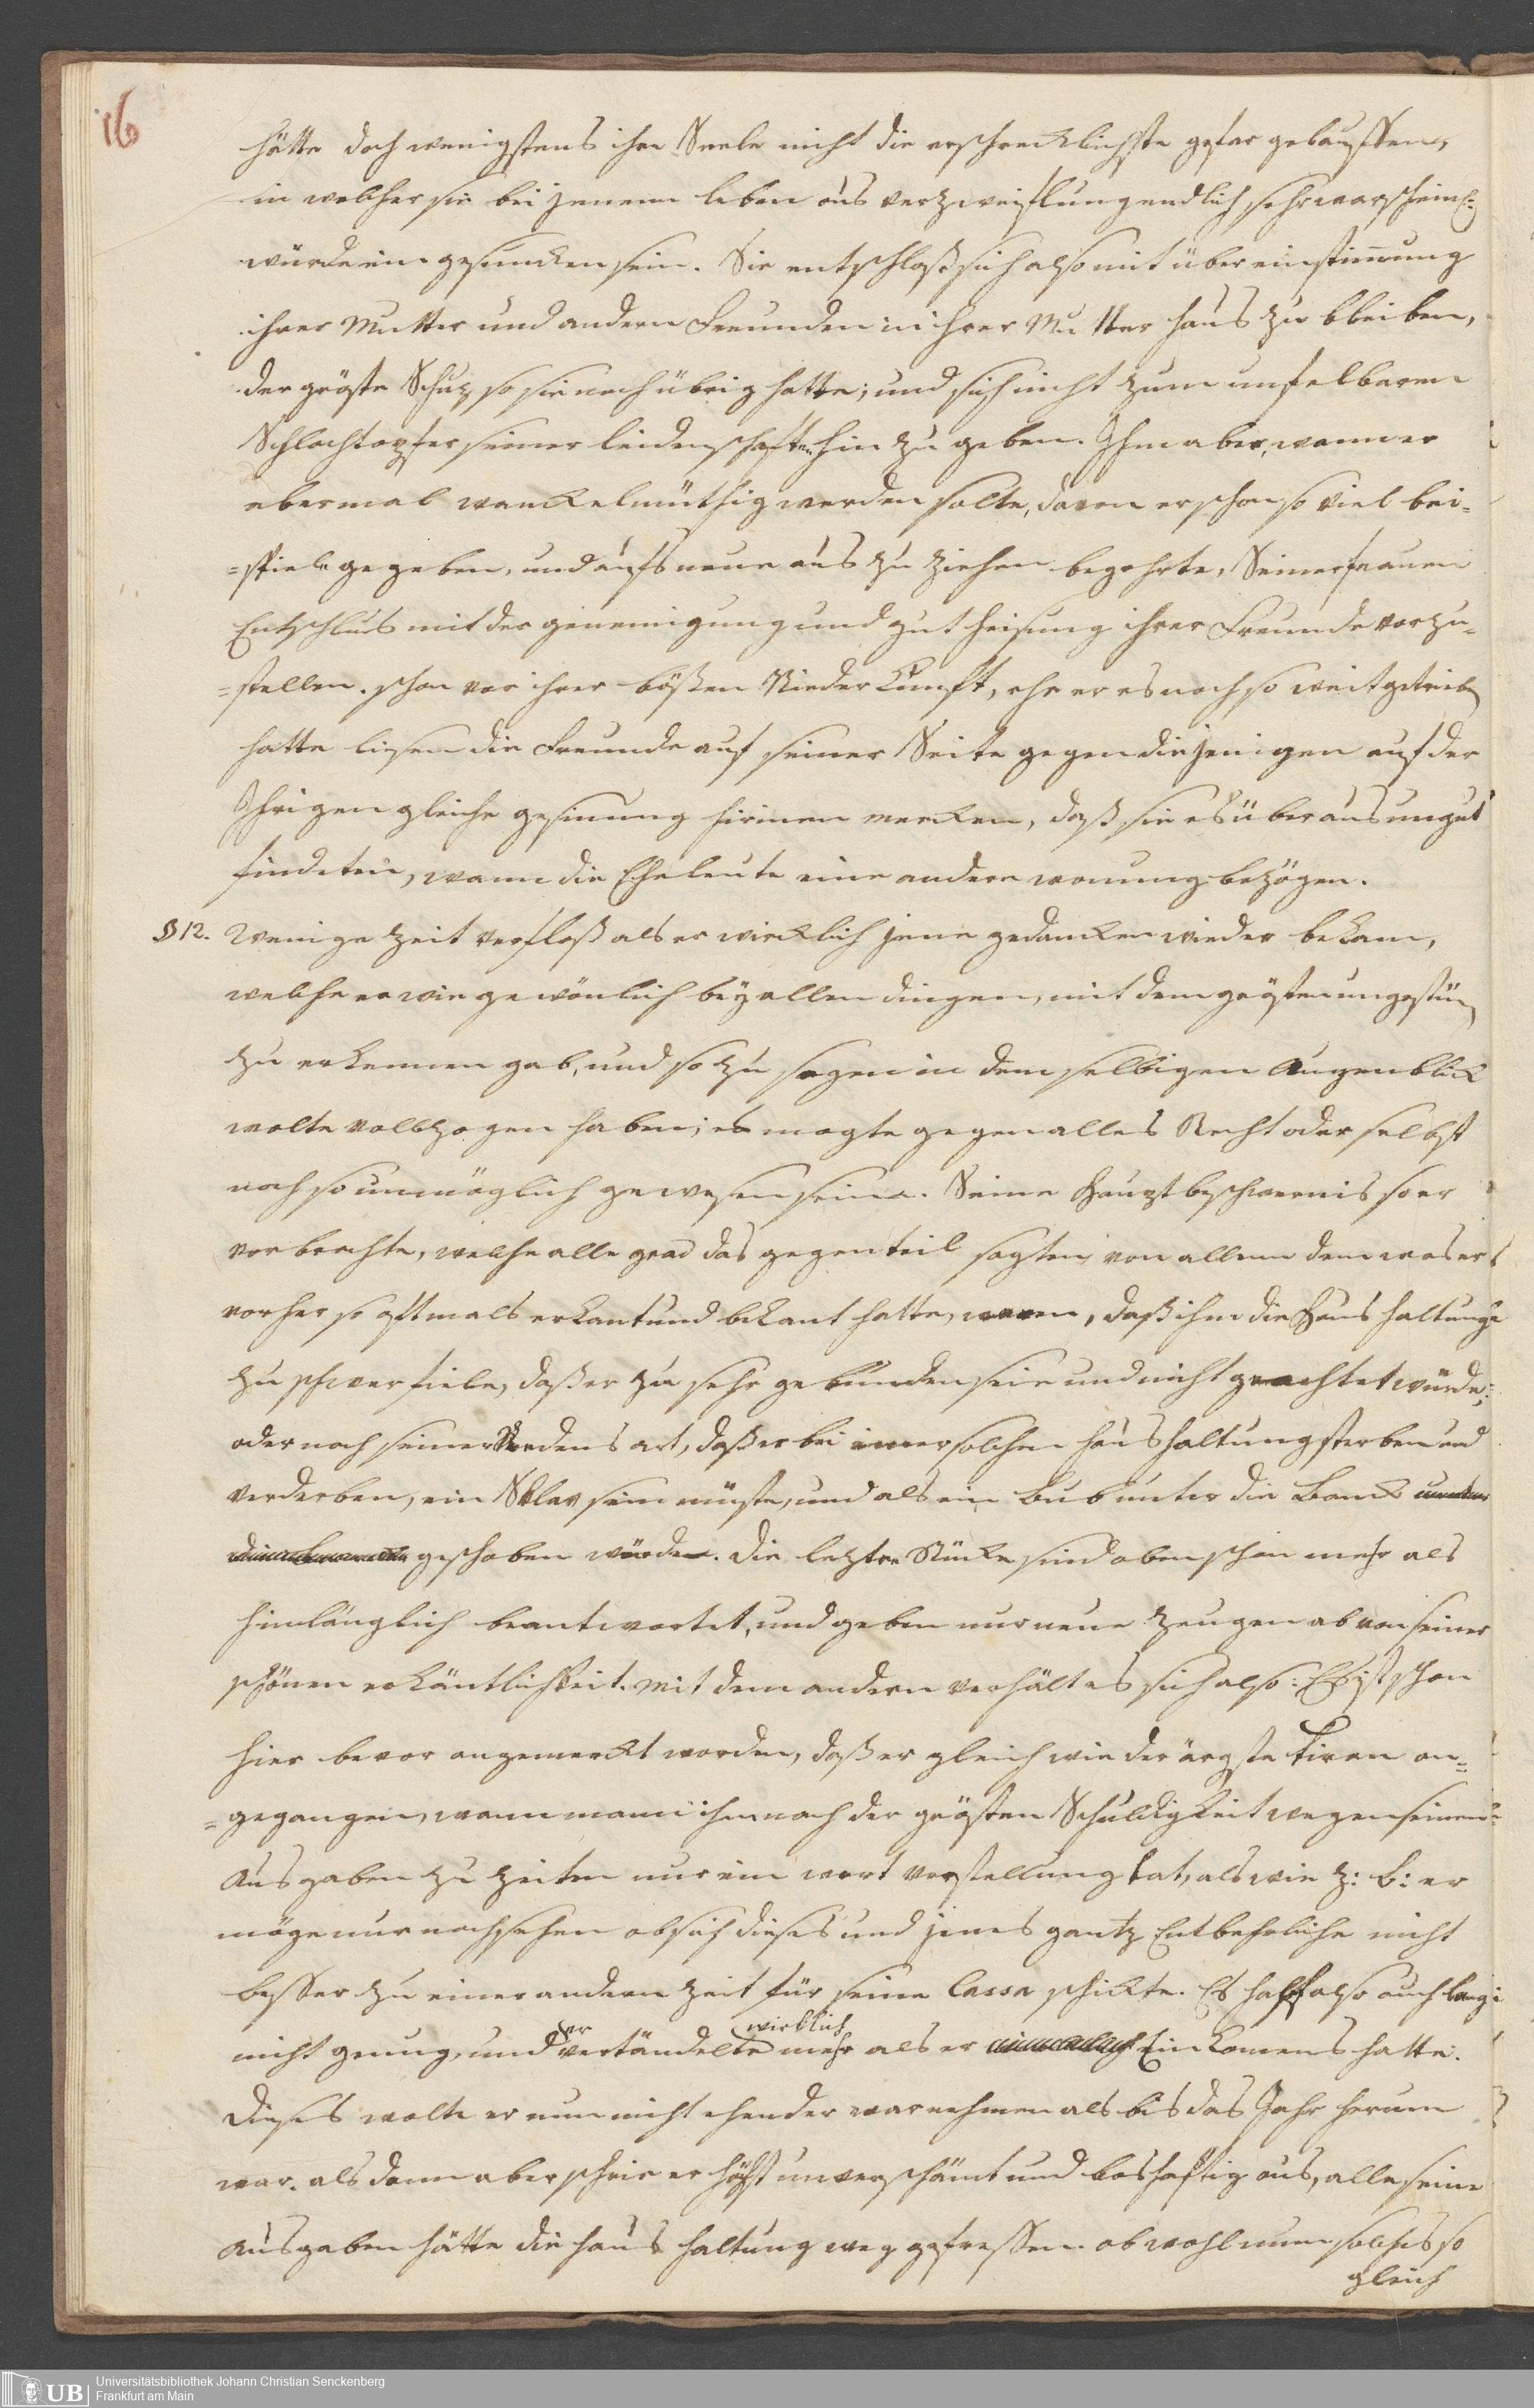 16
hätte doch wenigstens ihre Seele nicht die erschrecklichste gefar gelauffen,
in welcher sie bei jenem leben aus verzweiflung endlich sehr warscheinl:
würde ein gesuncken sein. Sie entschloß sich also mit übereinstimung
ihrer Mutter und andern Freunden in ihrer Mutter haus zu bleiben,
der gröste Schuz so sie noch übrig hatte; und sich nicht zum unfelbaren
Schlachtopfer seiner leidenschaften hin zu geben. Ihm aber, wann er
abermal wanckelmüthig werden solte, davon er schon so viel bei=
=spiele gegeben, und aufs neue aus zu ziehen begehrte, Seiner frauen
Entschlus mit der genemigung und gutheisung ihrer Freunde vorzu=
=stellen. schon vor ihrer bößen Niederkunft, ehe er es noch so weit getrieben
hatte liesen die Freunde auf seiner Seite gegen diejenigen auf der
Ihrigen gleiche gesinung hirinen mercken, daß sie es überaus ungut
findeten, wann die Eheleute eine andere wonung bezögen.
§ 12. Wenige Zeit verfloß als er wircklich jene gedancken wieder bekam,
welche er wie gewönlich bey allen dingen, mit dem grösten ungestüm
zu erkennen gab, und so zu sagen in dem selbigen Augenblick
wolte vollzogen haben; es mogte gegen alles Recht oder selbst
noch so unmöglich gewesen seine. Seine Hauptbeschwernis so er
vorbrachte, welche alle grad das gegenteil sagten von allem dem was er
vorher so oftmals erkant und bekant hatte, waren, daß ihm die Haushaltung
zu schwer fiele, daß er zu sehr gebunden seie und nicht geachtet würde;
oder nach seiner Redensart, daß er bei einer solchen haushaltung sterben und
verderben, ein Sklav sein müste, und als ein bub unter die banck
geschoben würde. Die leztre Stücke sind oben schon mehr als
hinlänglich beantwortet, und geben nur neue zeugen ab von seiner
schönen erkäntlichkeit. Mit dem andern verhält es sich also: Es ist schon
hier bevor angemerckt worden, daß er gleich wie der ärgste Tiran an=
=gegangen, wann mann ihm nach der grösten Schuldigkeit wegen seinen
Ausgaben zu zeiten nur ein wort vorstellung tat, als wie z: b: er
möge nur nachsehen ob sich dieses und jenes gantz Entbehrliche nicht
besser zu einer andern Zeit für seine Cassa schickte. Es half also auch lang
nicht genug, und er vertändelte wirklich mehr als er Einkomens hatte.
Dieses wolte er nun nicht ehender warnehmen als bis das Jahr herum
war. als dann aber schrie er höchst unverschämt und boshaftig aus, alle seine
Ausgaben hätte die haushaltung weg gefressen. obwohl nun solches so
gleich
Universitätsbibliothek Johann Christian Senckenberg
Frankfurt am Main
UB